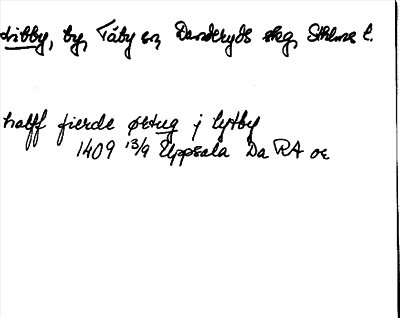 by, Täby sn, Danderyds skg, Sthlms l.
halff fierde ørtug j lytby
1409 13/9 Uppsala Da RA or